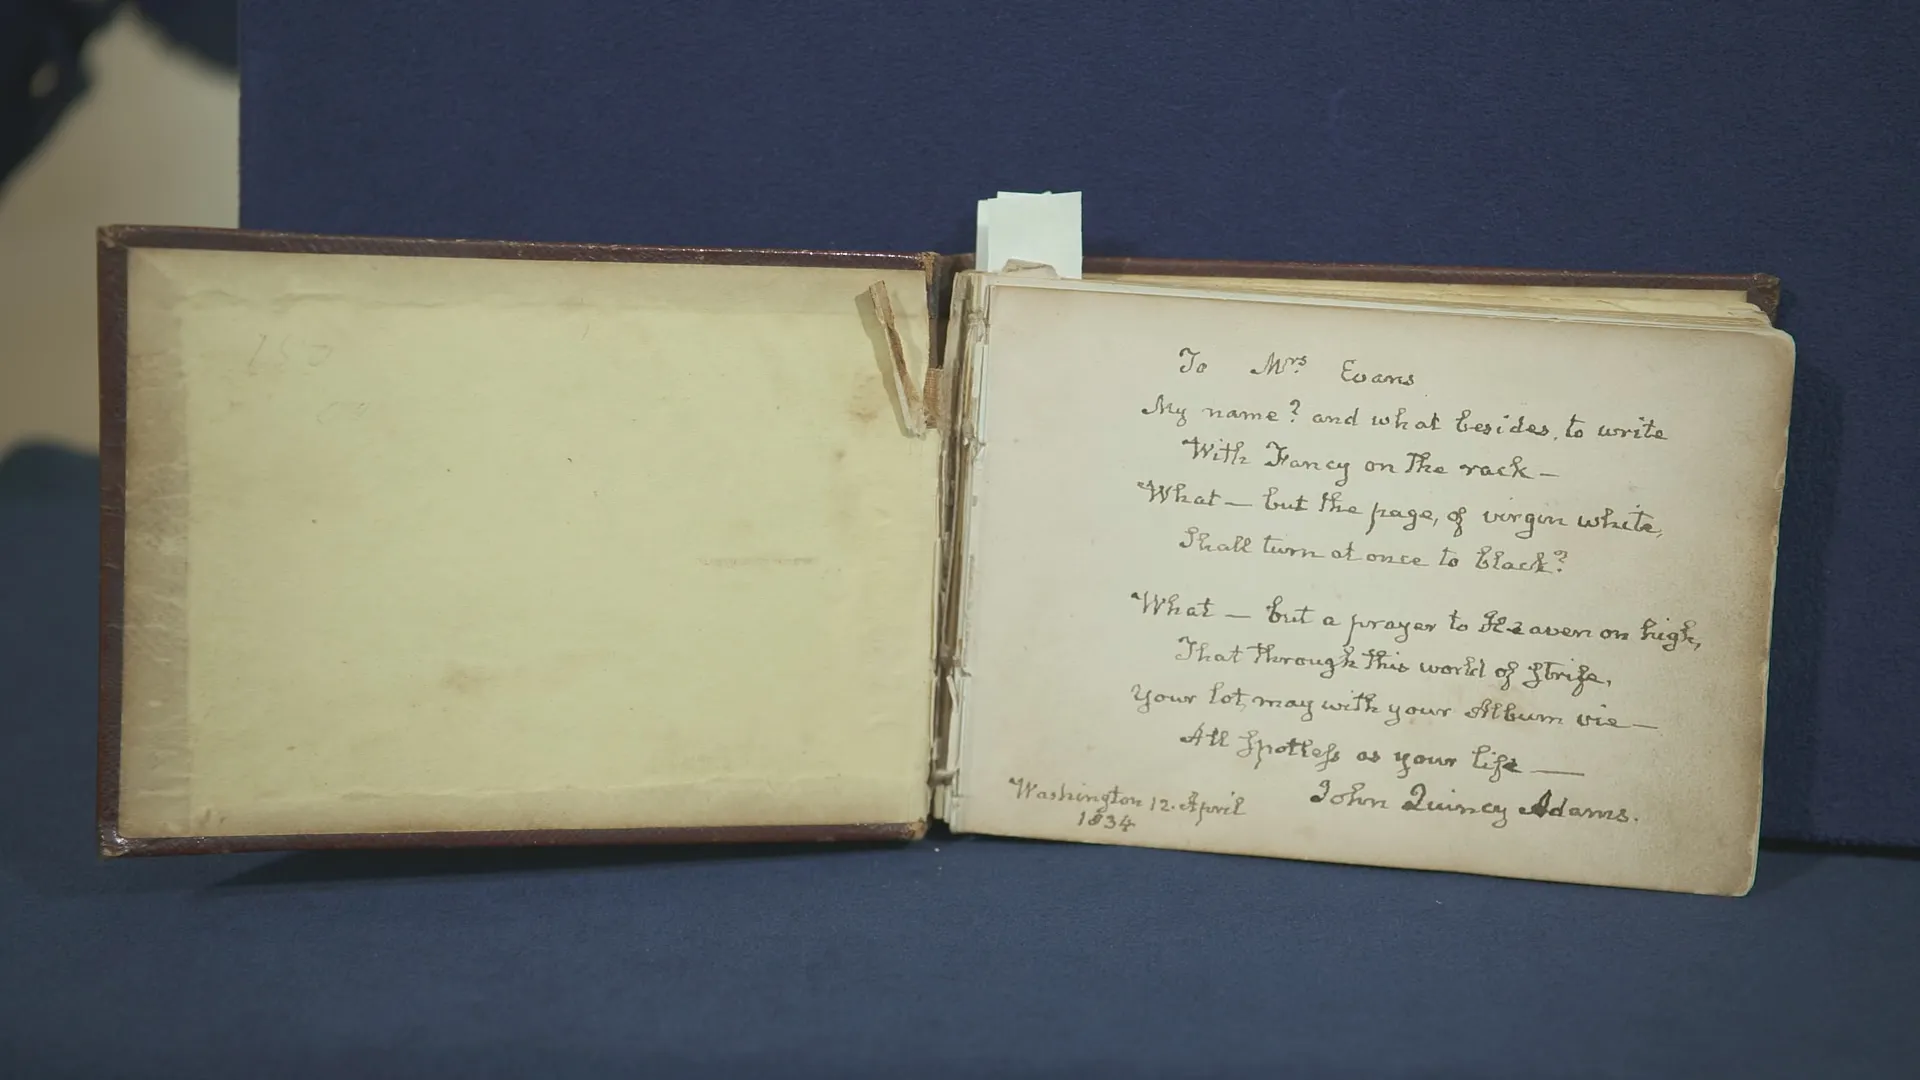 To Mrs. Evans
My name? and what besides, to write
With Fancy on the rack —
What — but the page, of virgin white,
Shall turn at once to black?
What — but a prayer to Heaven on high,
That through this world of strife,
Your lot, may with your Album vie —
All spotless as your life —
John Quincy Adams.
Washington 12. April
1834